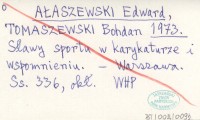 AŁASZEWSKI Edward,
TOMASZEWSKI Bohdan 1973.
Sławy sportu w karykaturze i
wspomnieniu. – Warszawa.
Ss. 336, obł. WHP